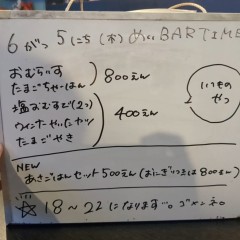 6がつ5にち(木)めぃBARTIME
おむらいす
たまごちゃーはん
800えん
塩おむすび(2つ)
ウィンナーやいたヤツ
たまごやき
400えん
いつもの
やつ
NEW
あさごはんセット500えん(おにぎりつきは800えん)
☆18〜22になります。ゴメンネ。